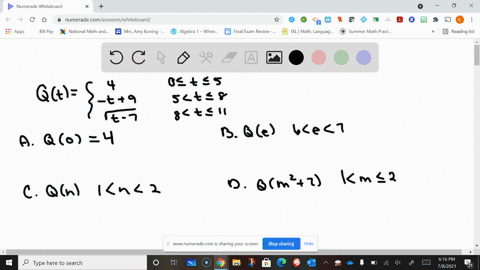 Numerade Whiteboard
numerade.com/answers/whiteboard/
Apps
Bill Pay
National Math and...
Mrs. Amy Koning -...
Algebra 1 – When...
Final Exam Review -...
IXL | Math, Languag...
Summer Math Prac...
Reading list
Q(t) = { 4 0 ≤ t ≤ 5
-t+9 5 < t ≤ 8
√t-7 8 < t ≤ 11
A. Q(0) = 4
B. Q(e) 6<e<7
C. Q(n) 1<n<2
D. Q(m²+7) 1<m≤2
www.numerade.com is sharing your screen.
Stop sharing
Hide
Type here to search
6:16 PM
7/6/2021